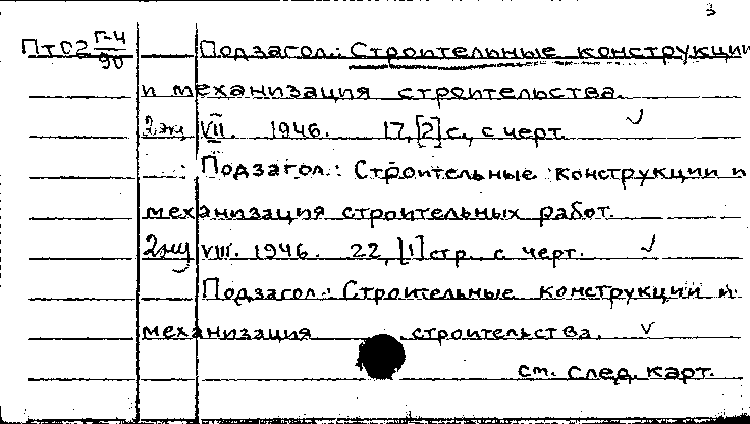 3
ПтО2 Г-4/90 Подзагол.: Строительные конструкции
и механизация строительства.
2экз VII. 1946. 17, [2] с., с черт. ✓
Подзагол.: Строительные конструкции и
механизация строительных работ.
2экз VIII. 1946. 22, [1] стр. с черт. ✓
Подзагол.: Строительные конструкции и
механизация строительства. v
см. след. карт.